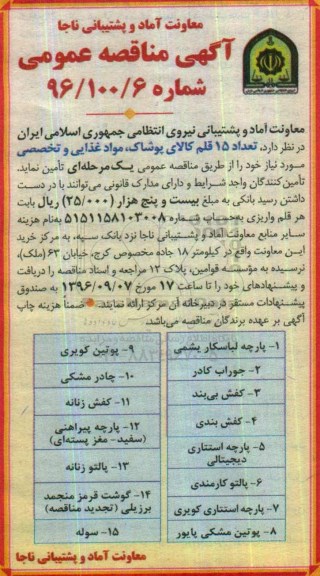 معاونت آماد و پشتیبانی ناجا
آگهی مناقصه عمومی
شماره ۹۶/۱۰۰/۶
معاونت آماد و پشتیبانی نیروی انتظامی جمهوری اسلامی ایران
در نظر دارد، تعداد ۱۵ قلم کالای پوشاک، مواد غذایی و تخصصی
مورد نیاز خود را از طریق مناقصه عمومی یک مرحله‌ای تأمین نماید.
تأمین‌کنندگان واجد شرایط و دارای مدارک قانونی می‌توانند با در دست
داشتن رسید بانکی به مبلغ بیست و پنج هزار (۲۵/۰۰۰) ریال بابت
هر قلم واریزی به‌حساب شماره ۵۱۵۱۱۵۸۱۰۳۰۰۸ به‌نام هزینه
سایر منابع معاونت آماد و پشتیبانی ناجا نزد بانک سپه، به مرکز خرید
این معاونت واقع در کیلومتر ۱۸ جاده مخصوص کرج، خیابان ۶۳ (ملک)،
نرسیده به مؤسسه قوامین، پلاک ۱۲ مراجعه و اسناد مناقصه را دریافت
و پیشنهادهای خود را تا ساعت ۱۷ مورخ ۱۳۹۶/۰۹/۰۷ به صندوق
پیشنهادات مستقر در دبیرخانه آن مرکز ارائه نمایند. ضمناً هزینه چاپ
آگهی بر عهده برندگان مناقصه می‌باشد.
۱- پارچه لباسکار یشمی
۲- جوراب کادر
۳- کفش بی‌بند
۴- کفش بندی
۵- پارچه استتاری
دیجیتالی
۶- پالتو کارمندی
۷- پارچه استتاری کویری
۸- پوتین مشکی پایور
۹- پوتین کویری
۱۰- چادر مشکی
۱۱- کفش زنانه
۱۲- پارچه پیراهنی
(سفید- مغز پسته‌ای)
۱۳- پالتو زنانه
۱۴- گوشت قرمز منجمد
برزیلی (تجدید مناقصه)
۱۵- سوله
معاونت آماد و پشتیبانی ناجا